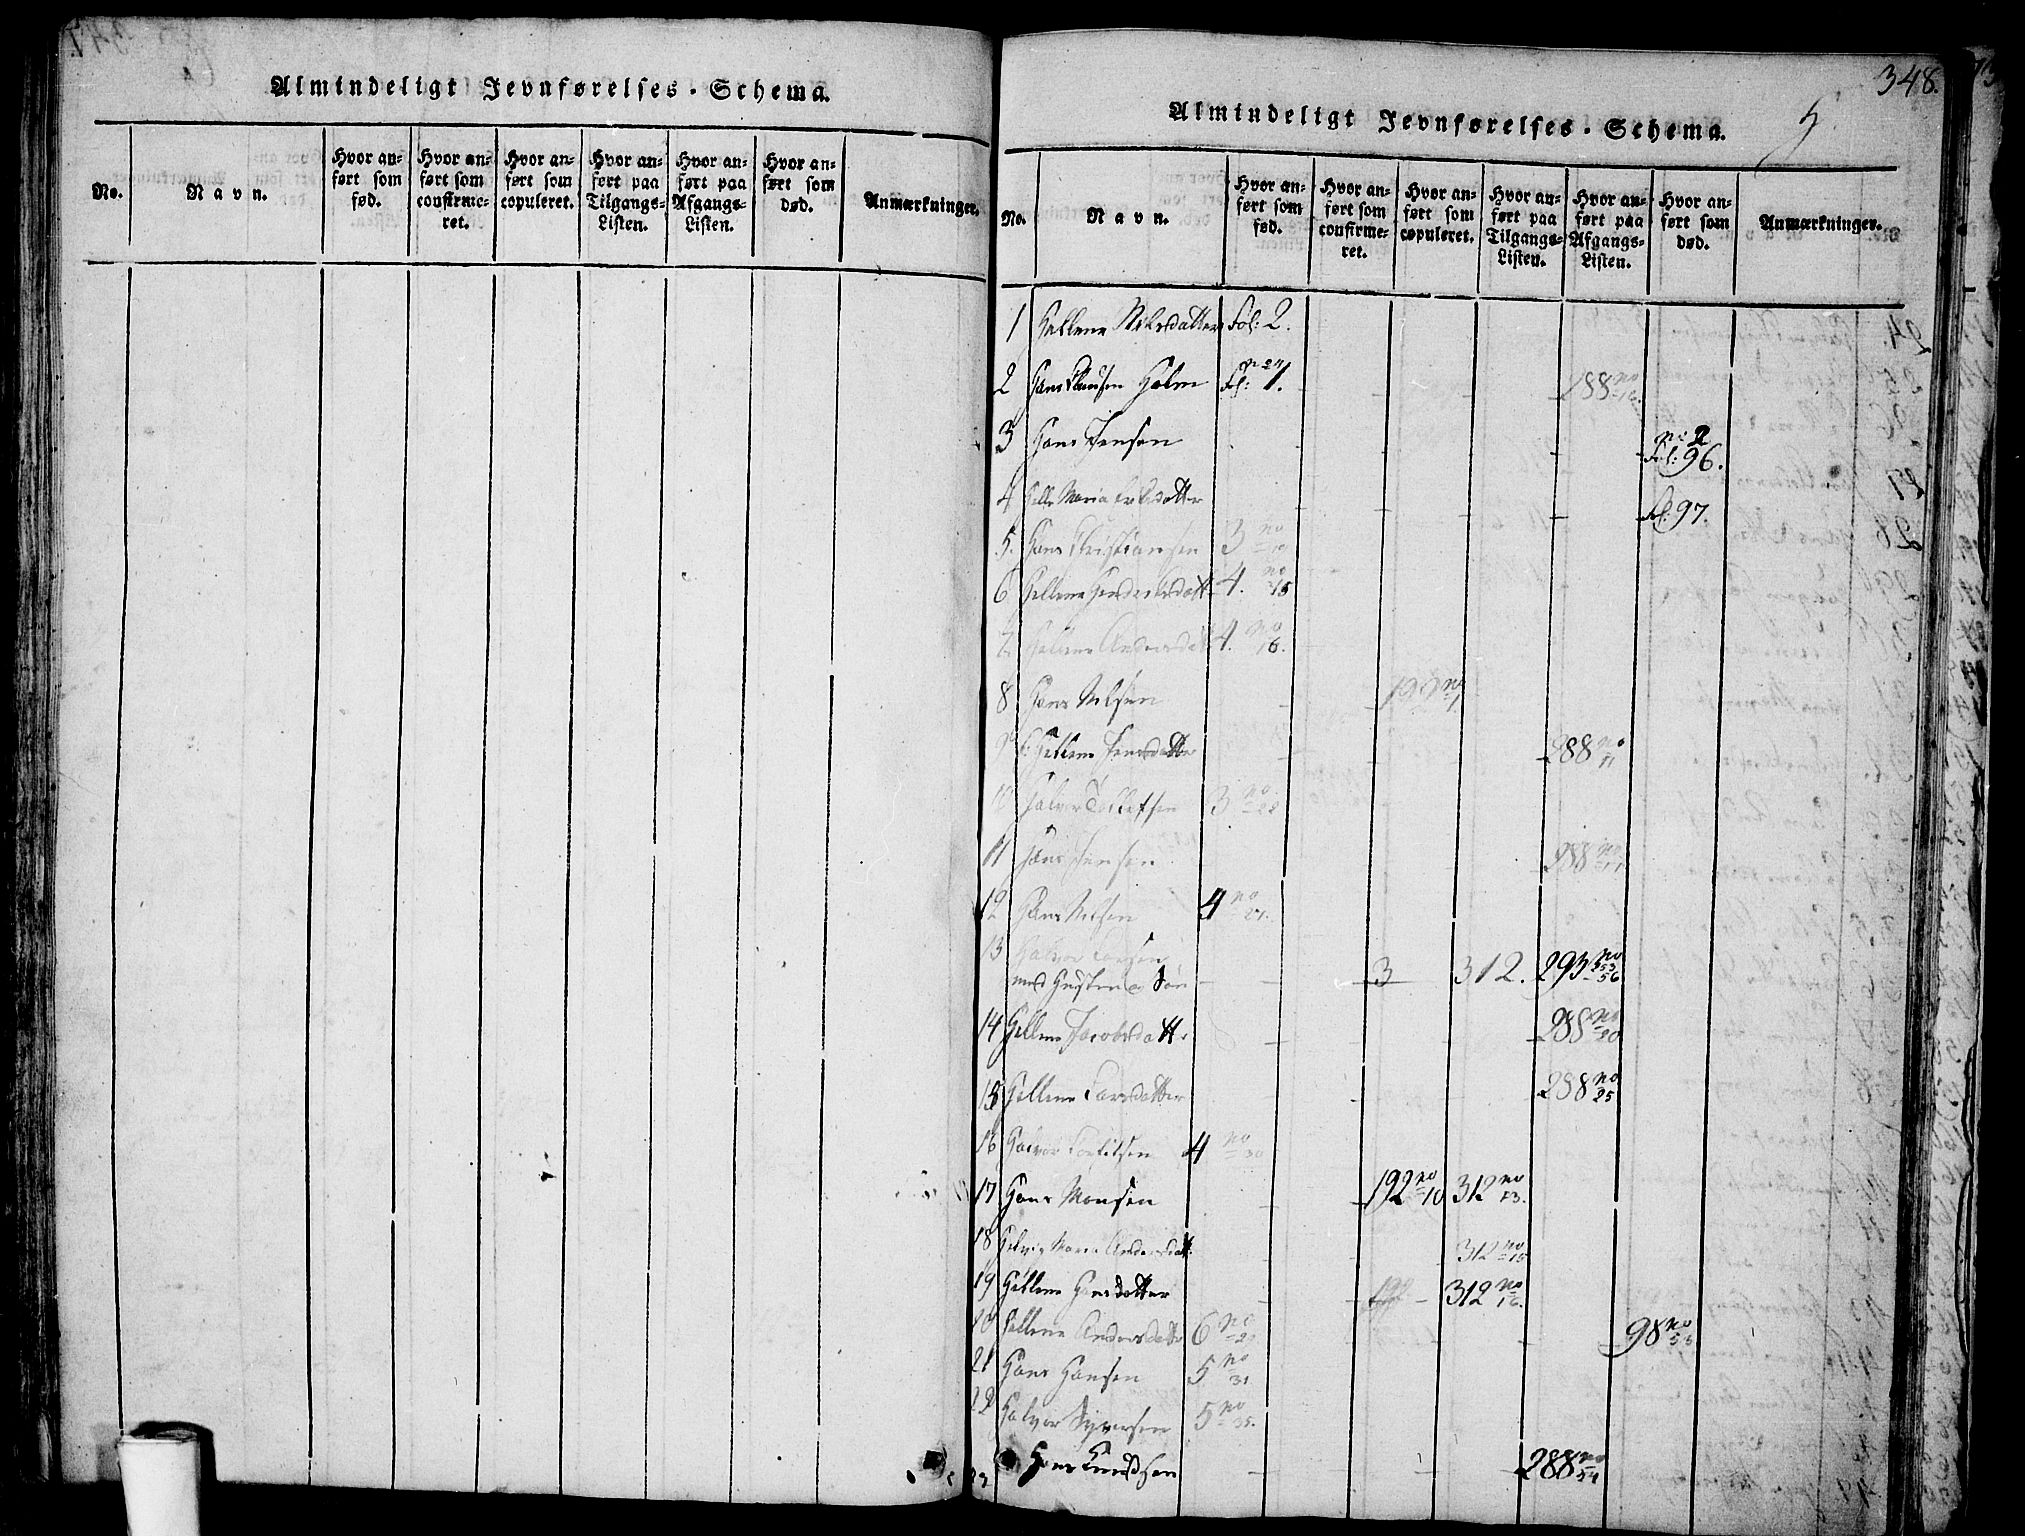 Almindeligt Jevnførelses-Schema.
No.
Navn.
Hvor anført som fød.
Hvor anført som confirmeret.
Hvor anført som copuleret.
Hvor anført paa Tilgangs-Listen.
Hvor anført paa Afgangs-Listen.
Hvor anført som død.
Anmærkninger.
348.
Almindeligt Jevnførelses-Schema.
No.
Navn.
Hvor anført som fød.
Hvor anført som confirmeret.
Hvor anført som copuleret.
Hvor anført paa Tilgangs-Listen.
Hvor anført paa Afgangs-Listen.
Hvor anført som død.
Anmærkninger.
1 Hellene Nilsdatter Fol: 2.
2 Hans Clausen Holm Fol: 1. 288 no 16.
3 Hans Jensen no 2 Fol: 96.
4 Helle Maria Eriksdatter Fol: 97.
5. Hans Christiansen 3 no 10
6 Hellene Hendriksdatt 4. no 15
7. Hellene Andersdatt 4. no 16.
8 Hans Nilsen 192 no 7
9 Hellene Jensdatter 288 no 11
10 Halvor Tollefsen 3 no 22
11 Hans Jensen 288 no 11
12 Hans Nilsen 4 no 27.
13 Halvor Larsen
med Hustru & Søn 3 312. 293 no 53 56
14 Hellene Jacobsdatter 288 no 20
15 Hellene Larsdatter 288 no 25
16 Halvor 4 no 30
17 Hans Monsen 192 no 10 312 no 13.
18 Helvig Maria Andersdatt 312 no 15
19 Hellene Hansdatter 312 no 16.
20 Hellene Andersdatter 6 no 98 no 53
21 Hans Hansen 5 no 31
22 Halvor Syversen 5 no 35.
23 Hans Knudsen 288 no 54